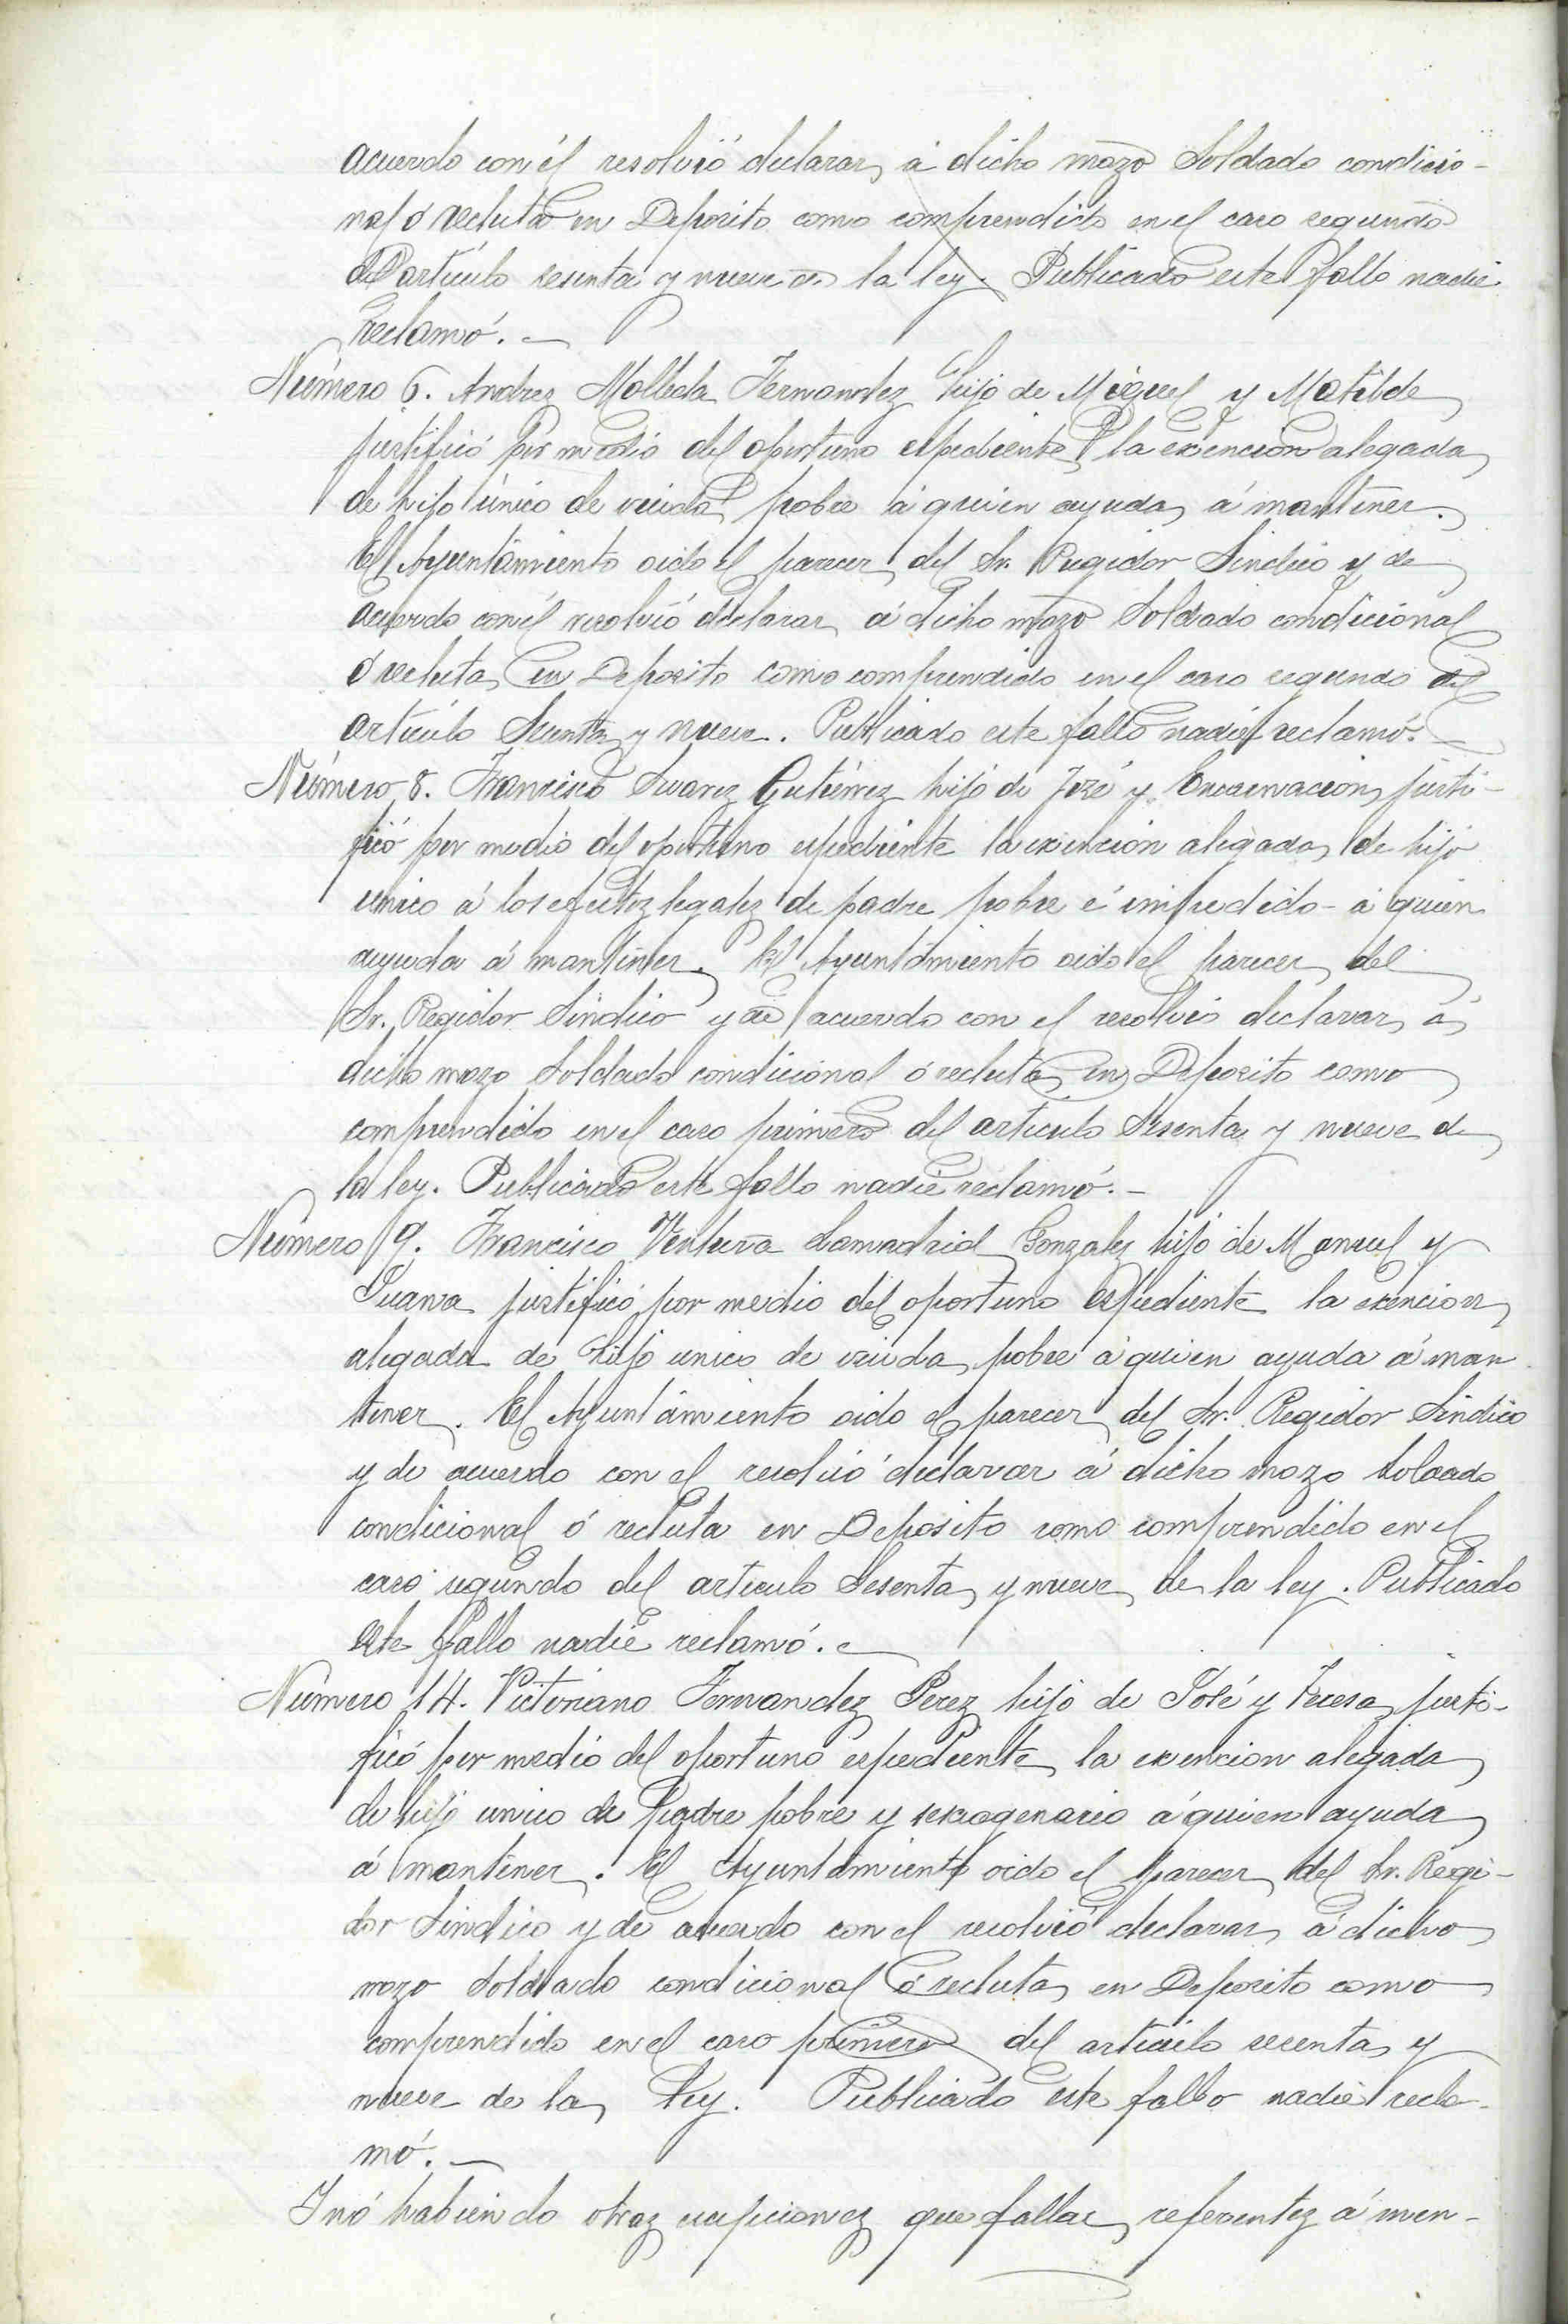 acuerdo con él resolvió declarar á dicho mozo Soldado condicio-
nal ó recluta en Deposito como comprendido en el caso segundo
del artículo sesenta y nueve de la ley. Publicado este fallo nadie
reclamó.
Número 6. Andrez Molleda Fernandez hijo de Miguel y Matilde
justificó por medio del oportuno espediente la exención alegada
de hijo único de viuda pobre á quien ayuda á mantener.
El Ayuntamiento oido el parecer del Sr. Regidor Sindico y de
acuerdo con él resolvió declarar á dicho mozo Soldado condicional
ó recluta en Deposito como comprendido en el caso segundo del
artículo Sesenta y nueve. Publicado este fallo nadie reclamó.
Número 8. Francisco Suarez Gutierrez hijo de José y Encarnacion justi-
ficó por medio del oportuno espediente la exención alegada de hijo
unico á los efectoz legalez de padre pobre é impedido á quien
ayuda á mantener. El Ayuntamiento oido el parecer del
Sr. Regidor Sindico y de acuerdo con el resolvió declarar á
dicho mozo Soldado condicional ó recluta en Deposito como
comprendido en el caso primero del artículo Sesenta y nueve de
la ley. Publicado este fallo nadie reclamó.-
Número 9. Francisco Ventura Lamadrid Gonzalez hijo de Manuel y
Juana justificó por medio del oportuno espediente la exencion
alegada de hijo unico de viuda pobre á quien ayuda á man
tener. El Ayuntamiento oido el parecer del Sr. Regidor Sindico
y de acuerdo con el resolvió declarar á dicho mozo Soldado
condicional ó recluta en Deposito como comprendido en el
caso segundo del articulo Sesenta y nueve de la ley. Publicado
este fallo nadie reclamó.
Número 14. Victoriano Fernandez Perez hijo de José y Teresa justi-
ficó por medio del oportuno espediente la exencion alegada
de hijo unico de Padre pobre y sexagenario á quien ayuda
á mantener. El Ayuntamiento oido el parecer del Sr. Regi-
dor Sindico y de acuerdo con el resolvió declarar á dicho
mozo Soldado condicional ó recluta en Deposito como
comprendido en el caso primero del articulo sesenta y
nueve de la Ley. Publicado este fallo nadie recla-
mó.
Y nó habiendo otraz excepcionez que fallar referentez á men-